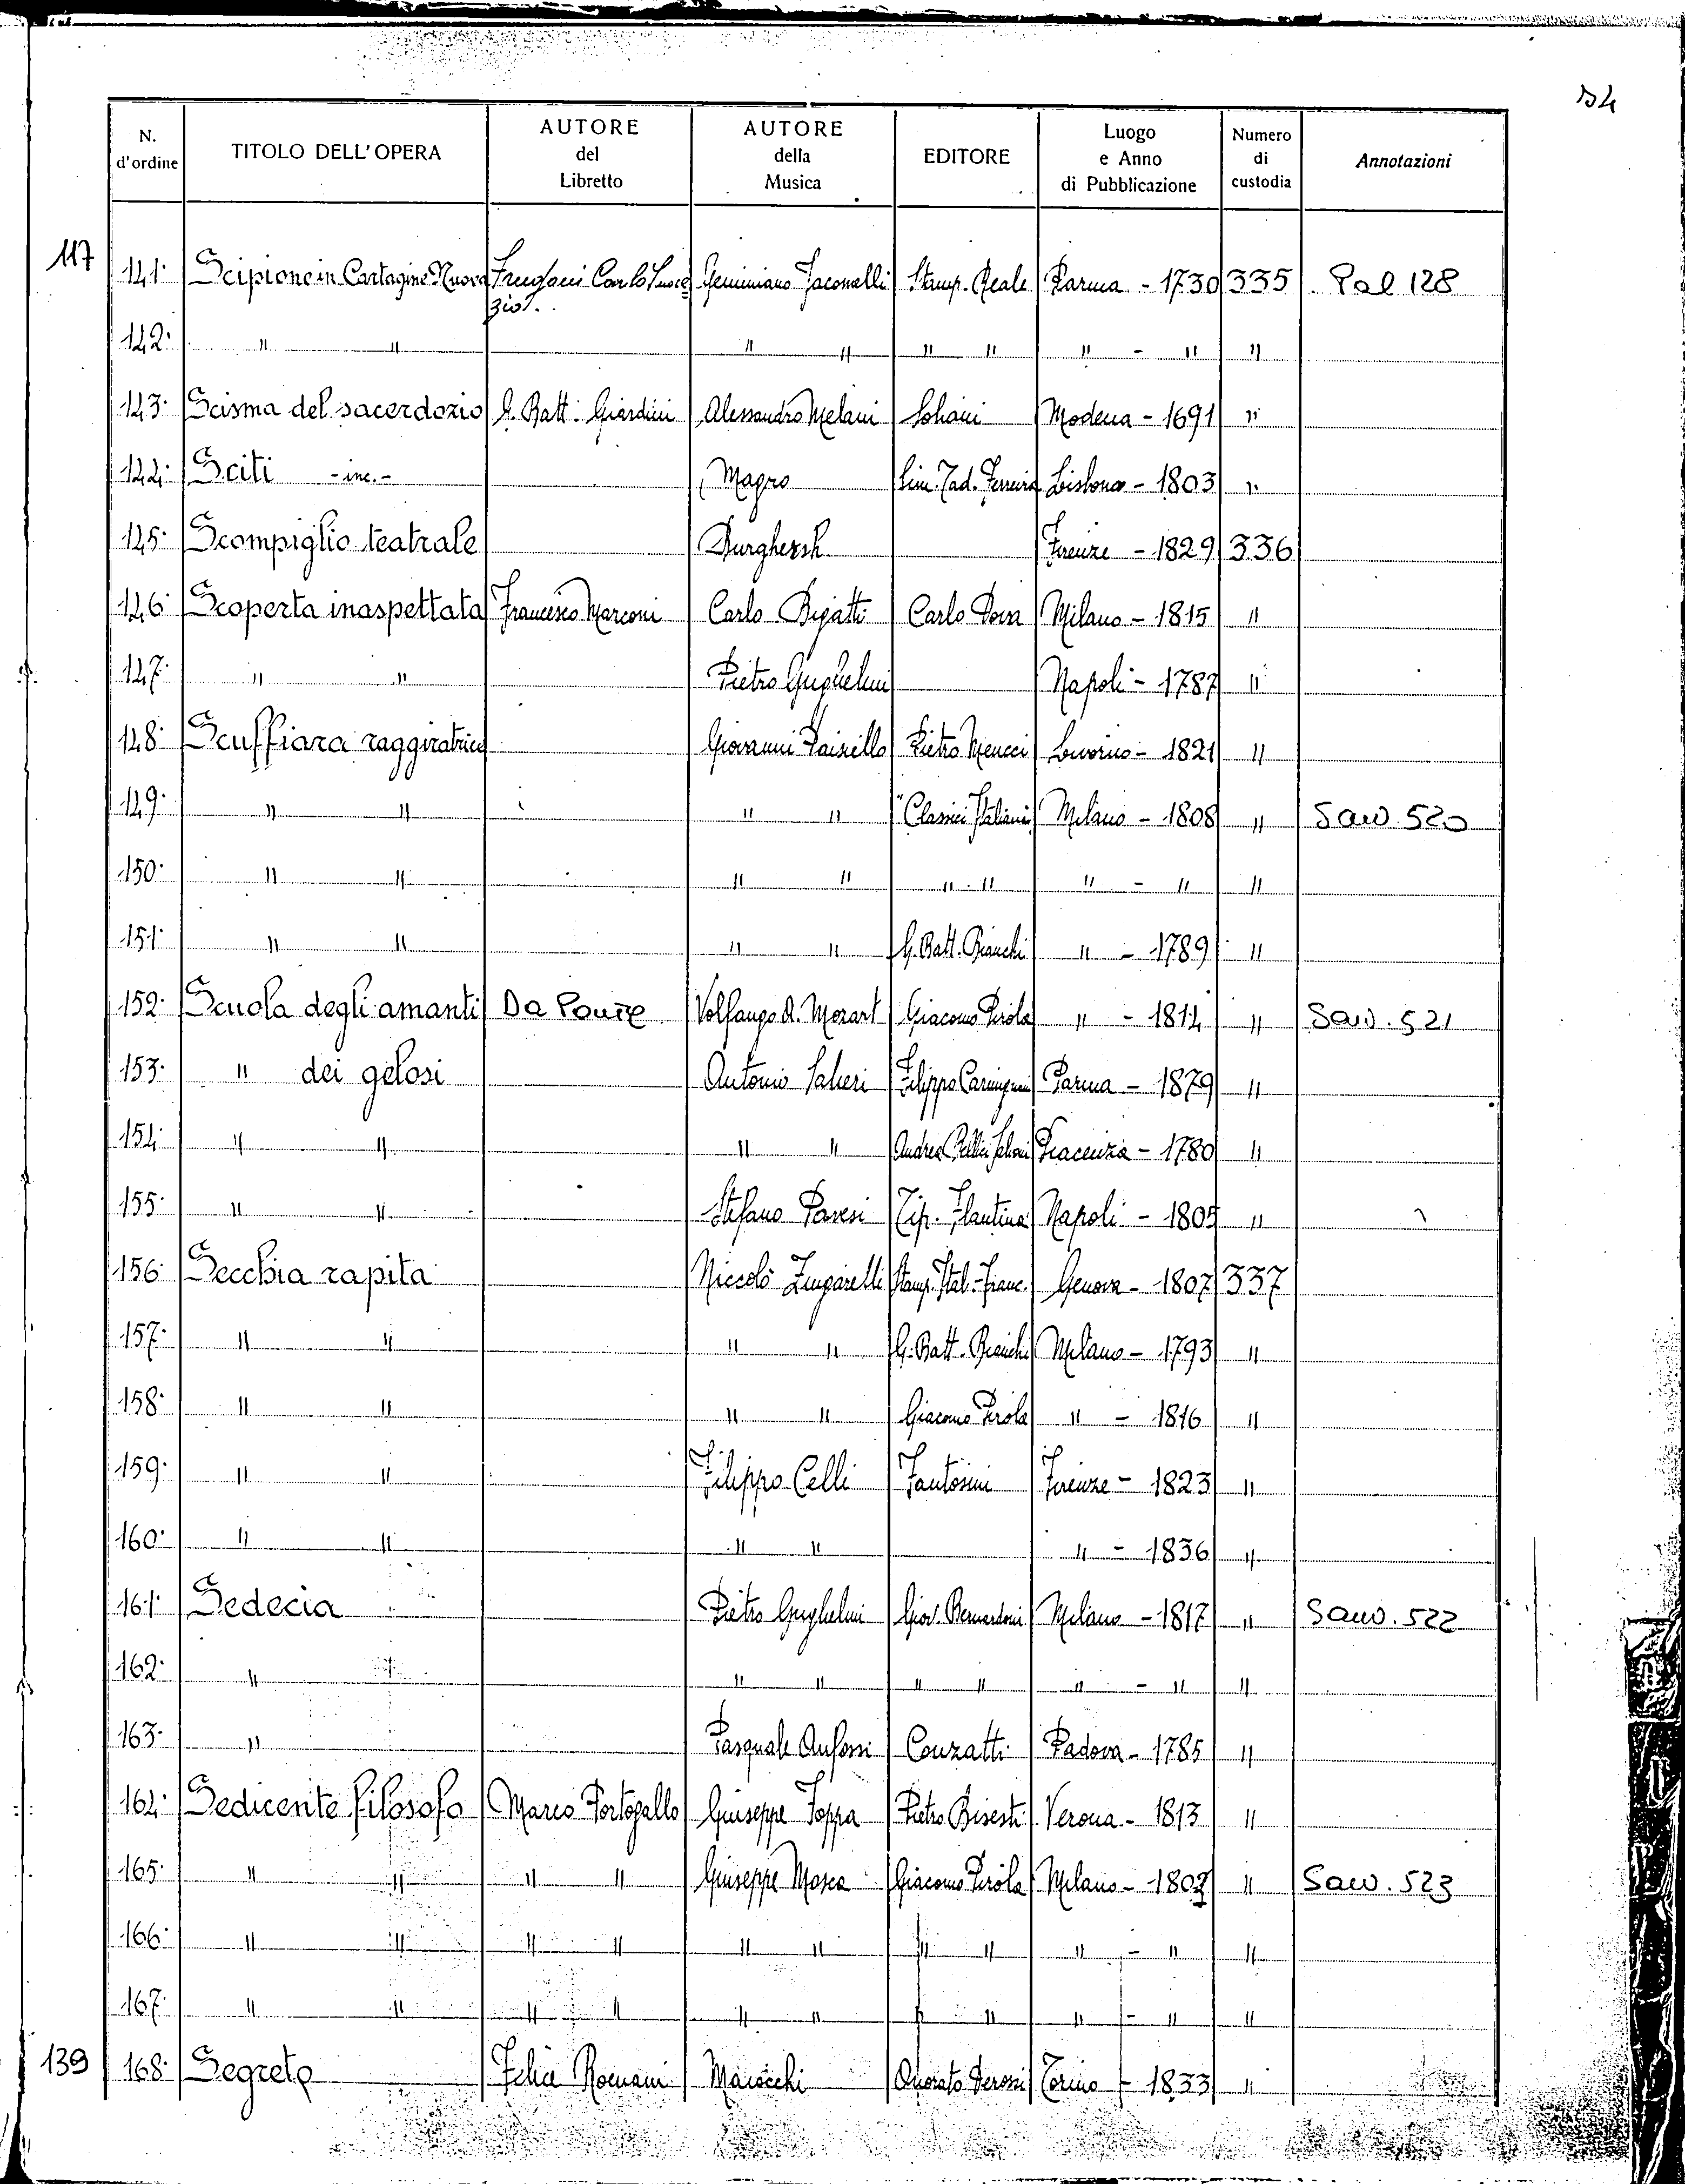 54
N. d'ordine | TITOLO DELL'OPERA | AUTORE del Libretto | AUTORE della Musica | EDITORE | Luogo e Anno di Pubblicazione | Numero di custodia | Annotazioni
117 | 141· | Scipione in Cartagine Nuova | Frugoni Carlo Innocenzio. | Geminiano Jacomelli | Stamp. Reale | Parma - 1730 | 335 | Pal 128
142· | " " | | " " | " " | " - " | "
143· | Scisma del sacerdozio | G. Batt. Giardini | Alessandro Melani | Soliani | Modena - 1691 | "
144· | Sciti - inc. - | | Magro | Sim. Tad. Ferreira | Lisbona - 1803 | "
145· | Scompiglio teatrale | | Burghersh | | Firenze - 1829 | 336
146· | Scoperta inaspettata | Francesco Marconi | Carlo Bigatti | Carlo Dova | Milano - 1815 | "
147· | " " | | Pietro Guglielmi | | Napoli - 1787 | "
148· | Scuffiara raggiratrice | | Giovanni Paisiello | Pietro Meucci | Livorno - 1821 | "
149· | " " | | " " | "Classici Italiani" | Milano - 1808 | " | Saw. 520
150· | " " | | " " | " " | " - " | "
151· | " " | | " " | G. Batt. Bianchi | " - 1789 | "
152· | Scuola degli amanti | Da Ponte | Volfango A. Mozart | Giacomo Pirola | " - 1814 | " | Saw. 521
153· | " dei gelosi | | Antonio Salieri | Filippo Carmignani | Parma - 1879 | "
154· | " " | | " " | Andrea Bellici Salvoni | Piacenza - 1780 | "
155· | " " | | Stefano Pavesi | Tip. Flautina | Napoli - 1805 | "
156· | Secchia rapita | | Niccolò Zingarelli | Stamp. Ital.-Franc. | Genova - 1807 | 337
157· | " " | | " " | G. Batt. Bianchi | Milano - 1793 | "
158· | " " | | " " | Giacomo Pirola | " - 1816 | "
159· | " " | | Filippo Celli | Fantosini | Firenze - 1823 | "
160· | " " | | " " | | " - 1836 | "
161· | Sedecia | | Pietro Guglielmi | Giov. Bernardoni | Milano - 1817 | " | Saw. 522
162· | " | | " " | " " | " - " | "
163· | " | | Pasquale Anfossi | Conzatti | Padova - 1785 | "
164· | Sedicente filosofo | Marco Portogallo | Giuseppe Foppa | Pietro Bisesti | Verona - 1813 | "
165· | " " | " " | Giuseppe Mosca | Giacomo Pirola | Milano - 1802 | " | Saw. 523
166· | " " | " " | " " | " " | " - " | "
167· | " " | " " | " " | " " | " - " | "
139 | 168· | Segreto | Felice Romani | Majocchi | Onorato Derossi | Torino - 1833 | "